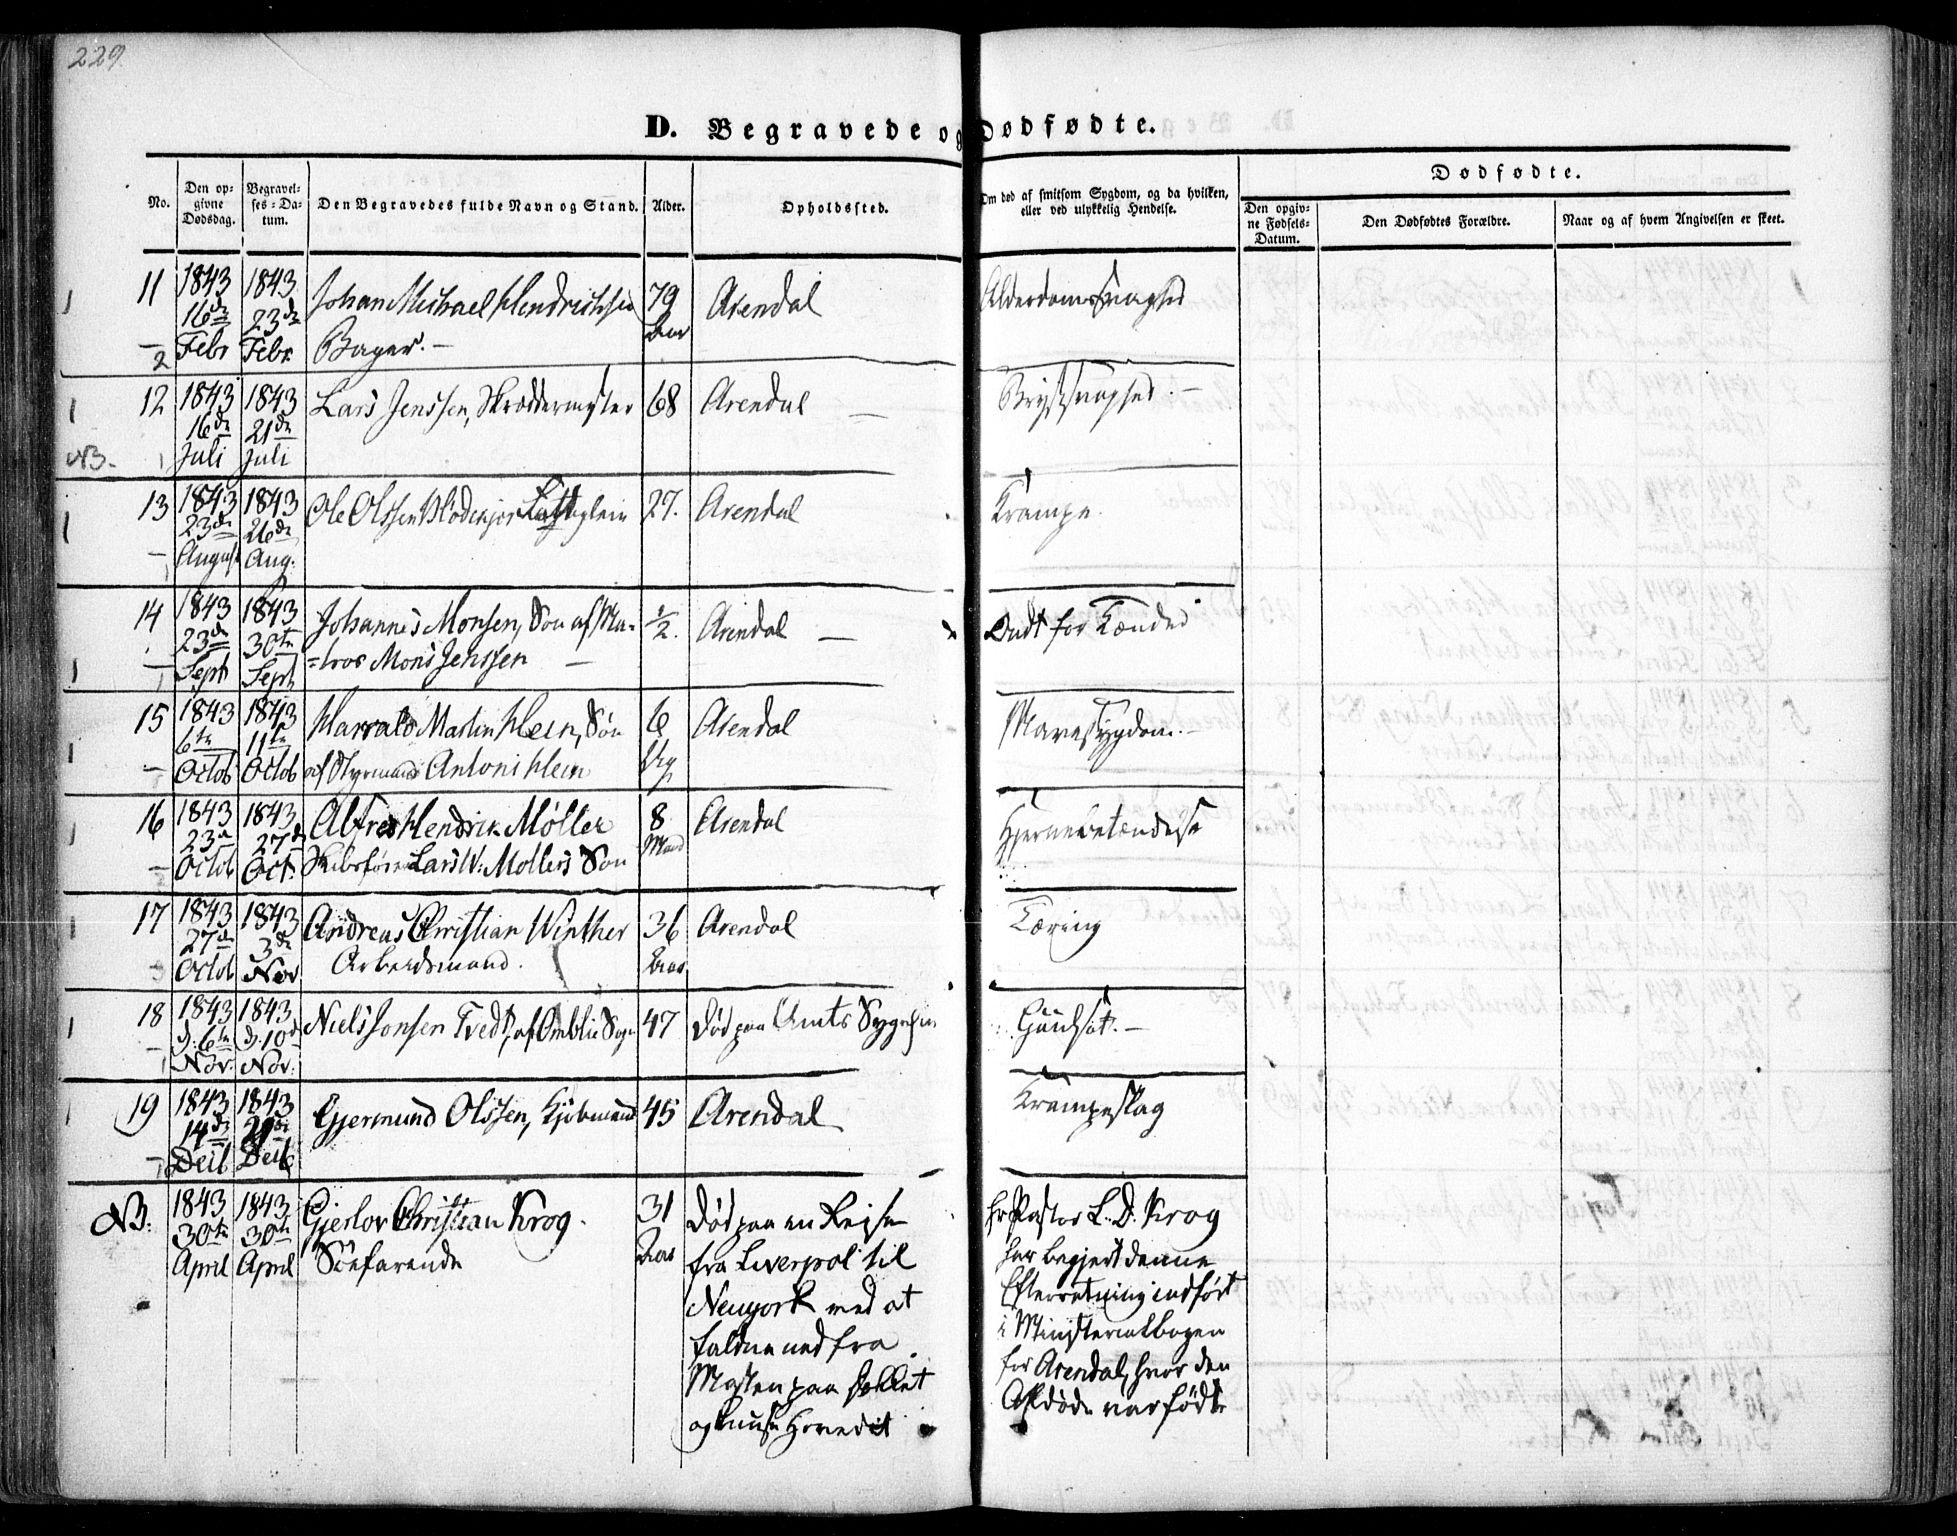 229
D. Begravede og Dødfødte.
No. Den op-givne Dødsdag. Begravel-ses-Da-tum. Den Begravedes fulde Navn og Stand. Alder. Opholdssted. Om død af smitsom Sygdom, og da hvilken, eller ved ulykkelig Hendelse. Dødfødte.
Den opgiv-ne Fødsels-Datum. Den Dødfødtes Forældre. Naar og af hvem Angivelsen er skeet.
11 1843 1843 Johan Michael Hendrichsen 79 Arendal Alderdomssvaghed
16de 23de
Febr Febr. Bager.
12 1843 1843 Lars Jenssen, Skræddermester 68 Arendal Brystsvaghed.
16de 21de
NB. Juli Juli
13 1843 1843 Ole Olssen 27. Arendal Krampe.
23de 26de
August Aug.
14 1843 1843 Johannes Monsen, Søn af Ma= 1/2. Arendal Ondt for Tænder
23de 30te =tros Mons Jenssen
Sept Sept
15 1843 1843 Harrald Martin Hein, Søn 6 Arendal Mavesygdom.
6te 11te
Octob Octob af Styrmand Antoni Hein Ug
16 1843 1843 Alfred Hendrik Møller 8 Arendal Hjernebetændelse
23de 27de
Octob Oct. Skibsfører Lars W: Møllers Søn Maand
17 1843 1843 Andreas Christian Winther 36 Arendal Tæring
27de 3de
Octob Nov Arbeidsmand. Aar
18 1843 1843 Niels Jonsen Tvedt, af Omblie Sogn 47 Død paa Amts Sygehus
d. 6te d. 10de
Nov: Nov:
19 1843 1843 Gjermund Olssen, Kjøbmand 45 Arendal Krampeslag
14de
Decb Decb
NB: 1843 1843 Gjerlov Christian Krog. 31 Død paa en Rejse Hr Pastor L. D. Krog
30te 30te
April April Søefarende Aar fra Liverpol til har begjert denne
Neuyork ved at Efterretning indført
faldne ned fra i Ministerialbogen
Masten paa Dekket for Arendal, hvor den
og knuse Hovedet Afdøde var født